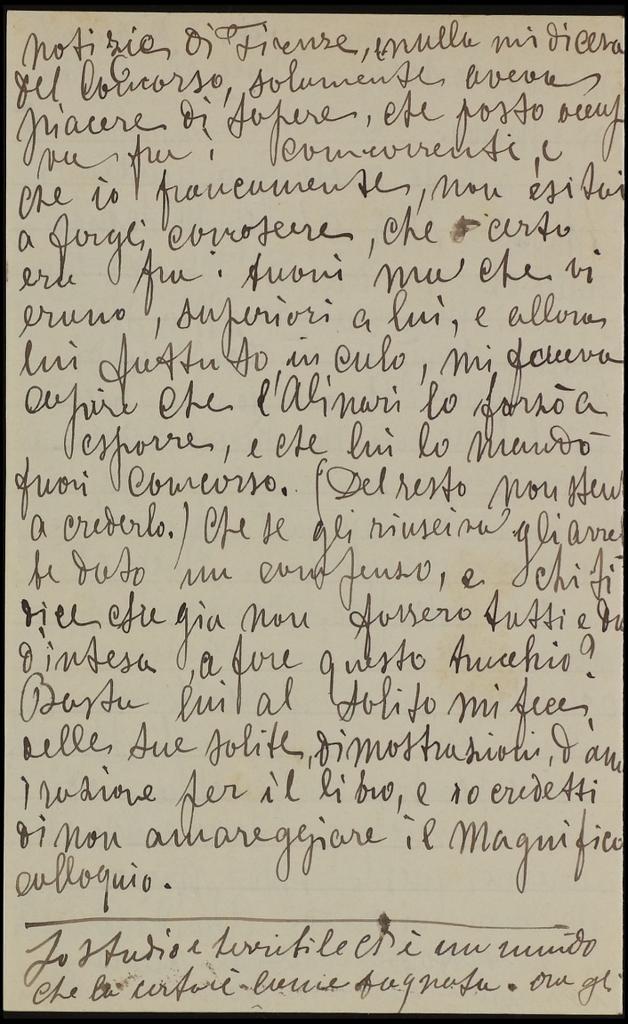 notizie di Firenze, e nulla mi diceva
del Concorso, solamente aveva
piacere di sapere, che posto occup
va fra i concorrenti, e
che io francamente, non esitai
a fargli conoscere, che certo
era fra i buoni ma che vi
erano, superiori a lui, e allora
lui futtuto in culo, mi faceva
capire che l'Alinari lo forzò a
esporre, e che lui lo mandò
fuori concorso. (Del resto non sten
a crederlo.) Che se gli riusciva gli avre
be dato un compenso, e chi ti
dice che gia non fossero tutti e du
d'intesa, a fare questo trucchio?
Basta lui al solito mi fece,
delle sue solite, dimostrazioni, d'am
irazione per il libro, e io credetti
di non amareggiare il Magnifico
colloquio.
Lo studio e terribile è un mondo
che la come bagnata. ora gli